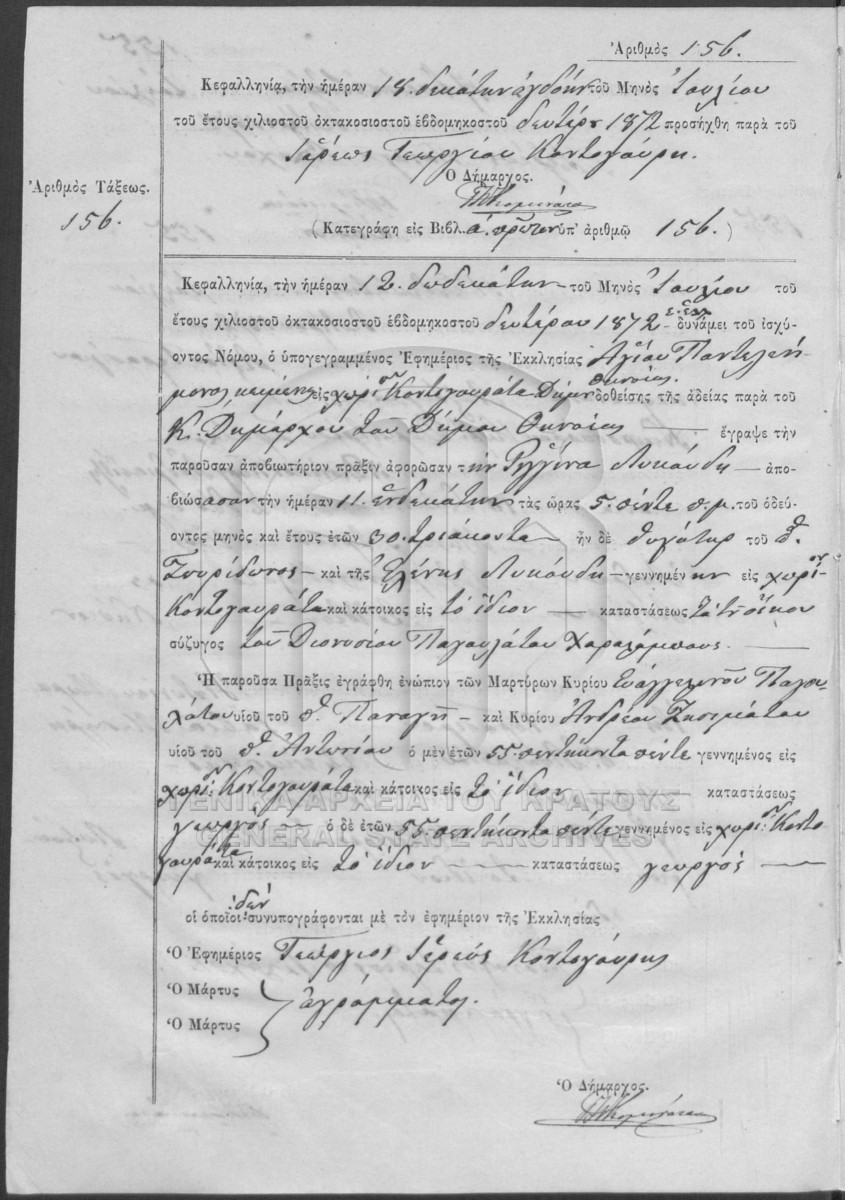 Ἀριθμὸς 156.
Κεφαλληνίᾳ, τὴν ἡμέραν 18. δεκάτην ὀγδόην τοῦ Μηνὸς Ἰουλίου
τοῦ ἔτους χιλιοστοῦ ὀκτακοσιοστοῦ ἑβδομηκοστοῦ δευτέρου 1872 προσήχθη παρὰ τοῦ
Ἱερέως Γεωργίου Κοντογούρη.
Ὁ Δήμαρχος.
Ἀριθμὸς Τάξεως.
156.
(Κατεγράφη εἰς Βιβλ. α. πρῶτον ὑπ' ἀριθμῷ 156.)
Κεφαλληνίᾳ, τὴν ἡμέραν 12. δωδεκάτην τοῦ Μηνὸς Ἰουλίου τοῦ
ἔτους χιλιοστοῦ ὀκτακοσιοστοῦ ἑβδομηκοστοῦ δευτέρου 1872 δυνάμει τοῦ ἰσχύ-
οντος Νόμου, ὁ ὑπογεγραμμένος Ἐφημέριος τῆς Ἐκκλησίας Ἁγίου Παντελεή-
μονος κειμένης εἰς χωρίον Κοντογουράτα Δήμου Θηναίας. δοθείσης τῆς ἀδείας παρὰ τοῦ
Κ. Δημάρχου τοῦ Δήμου Θηναίας ἔγραψε τὴν
παροῦσαν ἀποβιωτήριον πρᾶξιν ἀφορῶσαν τὴν Ρεγγίνα Λυκούδη ἀπο-
βιώσασαν τὴν ἡμέραν 11. ἑνδεκάτην τὰς ὥρας 5. πέντε π.μ. τοῦ ὁδεύ-
οντος μηνὸς καὶ ἔτους ἐτῶν 30. τριάκοντα ἦν δὲ θυγάτηρ τοῦ π.
Σπυρίδωνος καὶ τῆς Ἑλένης Λυκούδη γεννημένην εἰς χωρίον
Κοντογουράτα καὶ κάτοικος εἰς τὸ ἴδιον καταστάσεως τοῦ οἴκου
σύζυγος τοῦ Διονυσίου Παγουλάτου Χαραλάμπους.
Ἡ παροῦσα Πρᾶξις ἐγράφθη ἐνώπιον τῶν Μαρτύρων Κυρίου Εὐαγγελινοῦ Παγου-
λάτου υἱοῦ τοῦ π. Παναγῆ καὶ Κυρίου Ἀνδρέου Ζησιμάτου
υἱοῦ τοῦ π. Ἀντωνίου ὁ μὲν ἐτῶν 55. πεντήκοντα πέντε γεννημένος εἰς
χωρίον Κοντογουράτα καὶ κάτοικος εἰς τὸ ἴδιον καταστάσεως
γεωργὸς ὁ δὲ ἐτῶν 55. πεντήκοντα πέντε γεννημένος εἰς χωρίον Κοντο
γουράτα καὶ κάτοικος εἰς τὸ ἴδιον καταστάσεως γεωργὸς
οἱ ὁποῖοι δὲν συνυπογράφονται μὲ τὸν ἐφημέριον τῆς Ἐκκλησίας
Ὁ Ἐφημέριος Γεώργιος Ἱερεὺς Κοντογούρης
Ὁ Μάρτυς
ἀγράμματοι.
Ὁ Μάρτυς
Ὁ Δήμαρχος.
ΓΕΝΙΚΑ ΑΡΧΕΙΑ ΤΟΥ ΚΡΑΤΟΥΣ
GENERAL STATE ARCHIVES